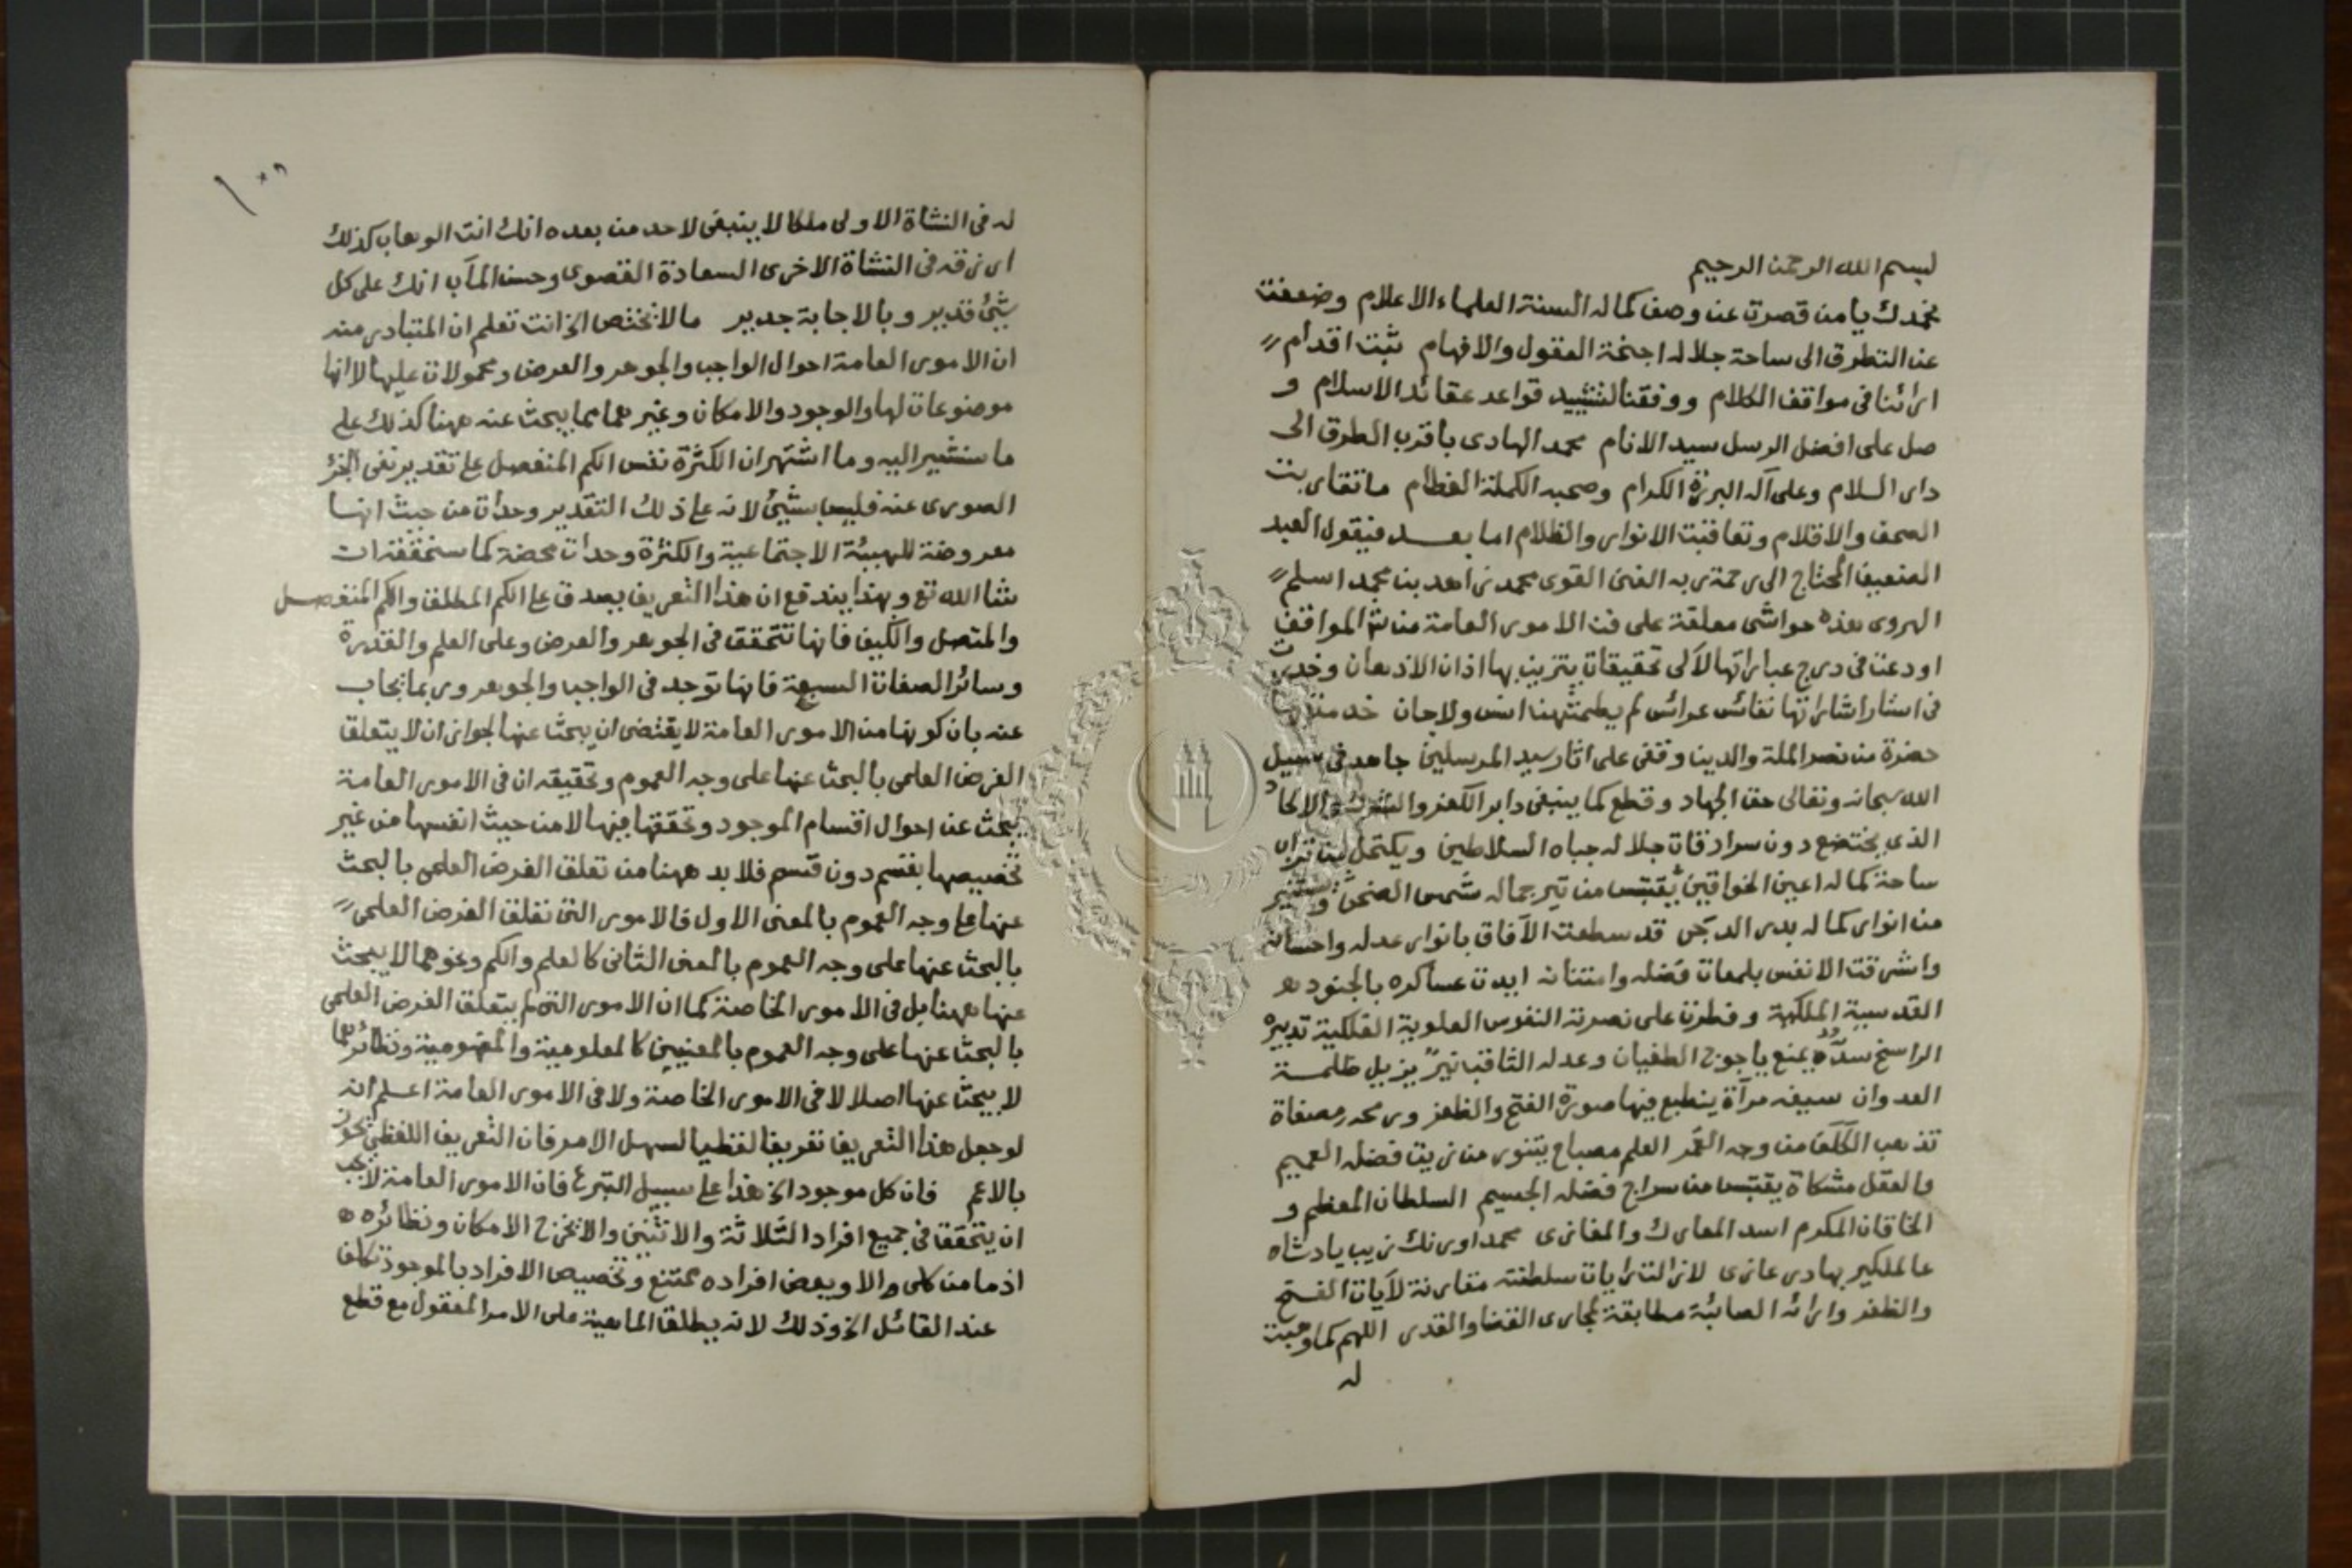 بسم الله الرحمن الرحيم
نحمدك يا من قصرت عن وصف كماله السنة العلماء الاعلام وضعفت
عن التطرق الى ساحة جلاله اجنحة العقول والافهام ثبت اقدام
ارائنا في مواقف الكلام ووفقنا لتشييد قواعد عقائد الاسلام و
صل على افضل الرسل سيد الانام محمد الهادى باقرب الطرق الى
دار السلام وعلى آله البررة الكرام وصحبه الكملة العظام ما تقاربت
الصحف والاقلام وتعاقبت الانوار والظلام اما بعد فيقول العبد
الضعيف المحتاج الى رحمة ربه الغنى القوى محمد زاهد بن محمد اسلم
الهروى هذه حواشى معلقة على فن الامور العامة من شرح المواقف
اودعت في درج عباراتها لآلى تحقيقات يتزين بها اذان الاذهان وخدرت
في استار اشاراتها نفائس عرائس لم يطمثهن انس ولا جان خدمت بها
حضرة من نصر الملة والدين وقفى على اثار سيد المرسلين جاهد في سبيل
الله سبحانه وتعالى حق الجهاد وقطع كما ينبغى دابر الكفر والشرك والالحاد
الذى يختضع دون سرادقات جلاله جباه السلاطين ويكتحل بتراب
ساحة كماله اعين الخواقين يقتبس من نير جماله شمس الضحى ويستنير
من انوار كماله بدر الدجى قد سطعت الآفاق بانوار عدله واحسانه
واشرقت الانفس بلمعات فضله وامتنانه ايدت عساكره بالجنود
القدسية الملكية وفطرت على نصرته النفوس العلوية الفلكية تدبيره
الراسخ سد يمنع ياجوج الطغيان وعدله الثاقب نير يزيل ظلمة
العدوان سيفه مرآة ينطبع فيها صورة الفتح والظفر ورمحه مصفاة
تذهب الكلف من وجه القمر العلم مصباح يتنور من زيت فضله العميم
والعقل مشكاة يقتبس من سراج فضله الجسيم السلطان المعظم و
الخاقان المكرم اسد المعارك والمغازى محمد اورنك زيب پادشاه
عالمكير بهادر غازى لازالت رايات سلطنته مقارنة لآيات الفتح
والظفر وارائه الصائبة مطابقة لمجارى القضا والقدر اللهم كما وهبت
له
له في النشاة الاولى ملكا لا ينبغى لاحد من بعده انك انت الوهاب كذلك
ارزقه في النشاة الاخرى السعادة القصوى وحسن المآب انك على كل
شئ قدير وبالاجابة جدير ما لا يختص الخ انت تعلم ان المتبادر منه
ان الامور العامة احوال الواجب والجوهر والعرض ومحمولات عليها لا انها
موضوعات لها والوجود والامكان وغيرهما مما يبحث عنه ههنا كذلك على
ما سنشير اليه وما اشتهر ان الكثرة نفس الكم المنفصل على تقدير نفى الجزء
الصورى عنه فليس بشئ لانه على ذلك التقدير وحدات من حيث انها
معروضة للهيئة الاجتماعية والكثرة وحدات محضة كما ستحققه ان
شا الله تع وبهذا يندفع ان هذا التعريف يصدق على الكم المطلق والكم المنفصل
والمتصل والكيف فانها تتحقق في الجوهر والعرض وعلى العلم والقدرة
وسائر الصفات السبعة فانها توجد في الواجب والجوهر وربما يجاب
عنه بان كونها من الامور العامة لا يقتضى ان يبحث عنها لجواز ان لا يتعلق
الغرض العلمى بالبحث عنها على وجه العموم وتحقيقه ان في الامور العامة
يبحث عن احوال اقسام الموجود وتحققها فيها لا من حيث انفسها من غير
تخصيصها بقسم دون قسم فلا بد ههنا من تعلق الغرض العلمى بالبحث
عنها على وجه العموم بالمعنى الاول فالامور التى تعلق الغرض العلمى
بالبحث عنها على وجه العموم بالمعنى الثانى كالعلم والكم ونحوهما لا يبحث
عنها ههنا بل في الامور الخاصة كما ان الامور التى لم يتعلق الغرض العلمى
بالبحث عنها على وجه العموم بالمعنيين كالمعلومية والمفهومية ونظائرهما
لا يبحث عنها اصلا لا في الامور الخاصة ولا في الامور العامة اعلم انه
لو جعل هذا التعريف تعريفا لفظيا لسهل الامر فان التعريف اللفظى يجوز
بالاعم فان كل موجود الخ هذا على سبيل التبرع فان الامور العامة لا يجب
ان يتحقق في جميع افراد الثلاثة والاثنين والا يخرج الامكان ونظائره
اذ ما من كلى الا وبعض افراده ممتنع وتخصيص الافراد بالموجودة تكلف
عند القائل الخ وذلك لانه يطلق الماهية على الامر المعقول مع قطع